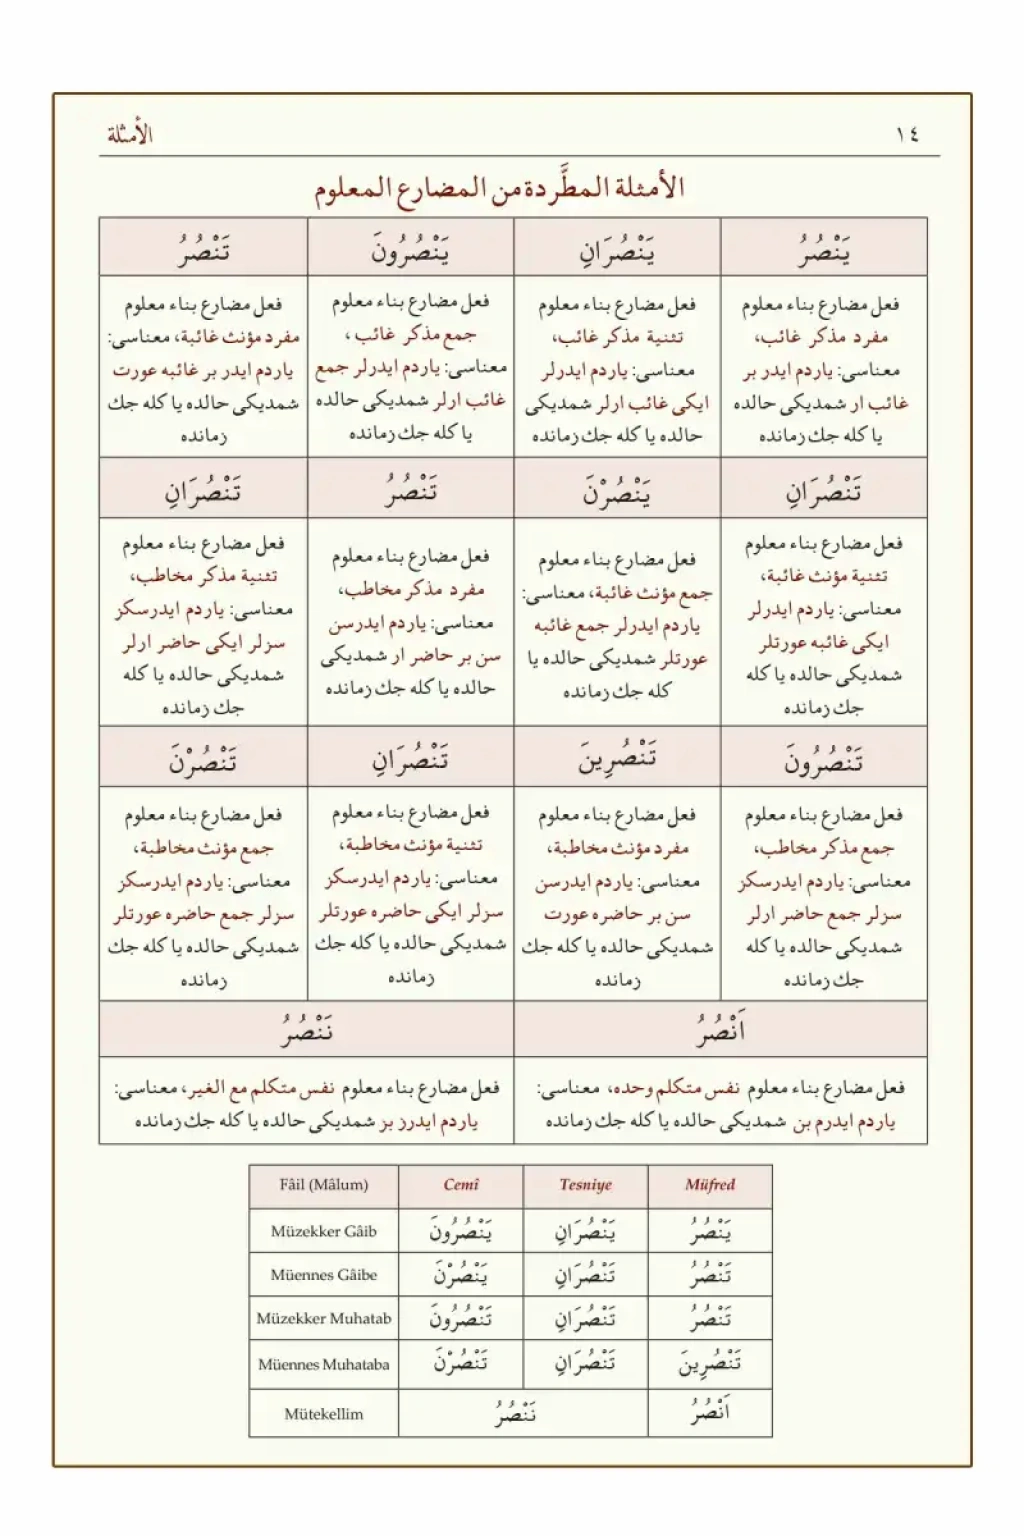 ١٤
الأمثلة
الأمثلة المطَّردة من المضارع المعلوم
يَنْصُرُ
يَنْصُرَانِ
يَنْصُرُونَ
تَنْصُرُ
فعل مضارع بناء معلوم
مفرد مذكر غائب،
معناسی: ياردم ايدر بر
غائب ار شمديكى حالده
يا كله جك زمانده
فعل مضارع بناء معلوم
تثنية مذكر غائب،
معناسی: ياردم ايدرلر
ايكى غائب ارلر شمديكى
حالده يا كله جك زمانده
فعل مضارع بناء معلوم
جمع مذكر غائب ،
معناسی: ياردم ايدرلر جمع
غائب ارلر شمديكى حالده
يا كله جك زمانده
فعل مضارع بناء معلوم
مفرد مؤنث غائبة، معناسی:
ياردم ايدر بر غائبه عورت
شمديكى حالده يا كله جك
زمانده
تَنْصُرَانِ
يَنْصُرْنَ
تَنْصُرُ
تَنْصُرَانِ
فعل مضارع بناء معلوم
تثنية مؤنث غائبة،
معناسی: ياردم ايدرلر
ايكى غائبه عورتلر
شمديكى حالده يا كله
جك زمانده
فعل مضارع بناء معلوم
جمع مؤنث غائبة، معناسی:
ياردم ايدرلر جمع غائبه
عورتلر شمديكى حالده يا
كله جك زمانده
فعل مضارع بناء معلوم
مفرد مذكر مخاطب،
معناسی: ياردم ايدرسن
سن بر حاضر ار شمديكى
حالده يا كله جك زمانده
فعل مضارع بناء معلوم
تثنية مذكر مخاطب،
معناسی: ياردم ايدرسكز
سزلر ايكى حاضر ارلر
شمديكى حالده يا كله
جك زمانده
تَنْصُرُونَ
تَنْصُرِينَ
تَنْصُرَانِ
تَنْصُرْنَ
فعل مضارع بناء معلوم
جمع مذكر مخاطب،
معناسی: ياردم ايدرسكز
سزلر جمع حاضر ارلر
شمديكى حالده يا كله
جك زمانده
فعل مضارع بناء معلوم
مفرد مؤنث مخاطبة،
معناسی: ياردم ايدرسن
سن بر حاضره عورت
شمديكى حالده يا كله جك
زمانده
فعل مضارع بناء معلوم
تثنية مؤنث مخاطبة،
معناسی: ياردم ايدرسكز
سزلر ايكى حاضره عورتلر
شمديكى حالده يا كله جك
زمانده
فعل مضارع بناء معلوم
جمع مؤنث مخاطبة،
معناسی: ياردم ايدرسكز
سزلر جمع حاضره عورتلر
شمديكى حالده يا كله جك
زمانده
اَنْصُرُ
نَنْصُرُ
فعل مضارع بناء معلوم نفس متكلم وحده، معناسی:
ياردم ايدرم بن شمديكى حالده يا كله جك زمانده
فعل مضارع بناء معلوم نفس متكلم مع الغير، معناسی:
ياردم ايدرز بز شمديكى حالده يا كله جك زمانده
Fâil (Mâlum) Cemî Tesniye Müfred
Müzekker Gâib يَنْصُرُونَ يَنْصُرَانِ يَنْصُرُ
Müennes Gâibe يَنْصُرْنَ تَنْصُرَانِ تَنْصُرُ
Müzekker Muhatab تَنْصُرُونَ تَنْصُرَانِ تَنْصُرُ
Müennes Muhataba تَنْصُرْنَ تَنْصُرَانِ تَنْصُرِينَ
Mütekellim نَنْصُرُ اَنْصُرُ